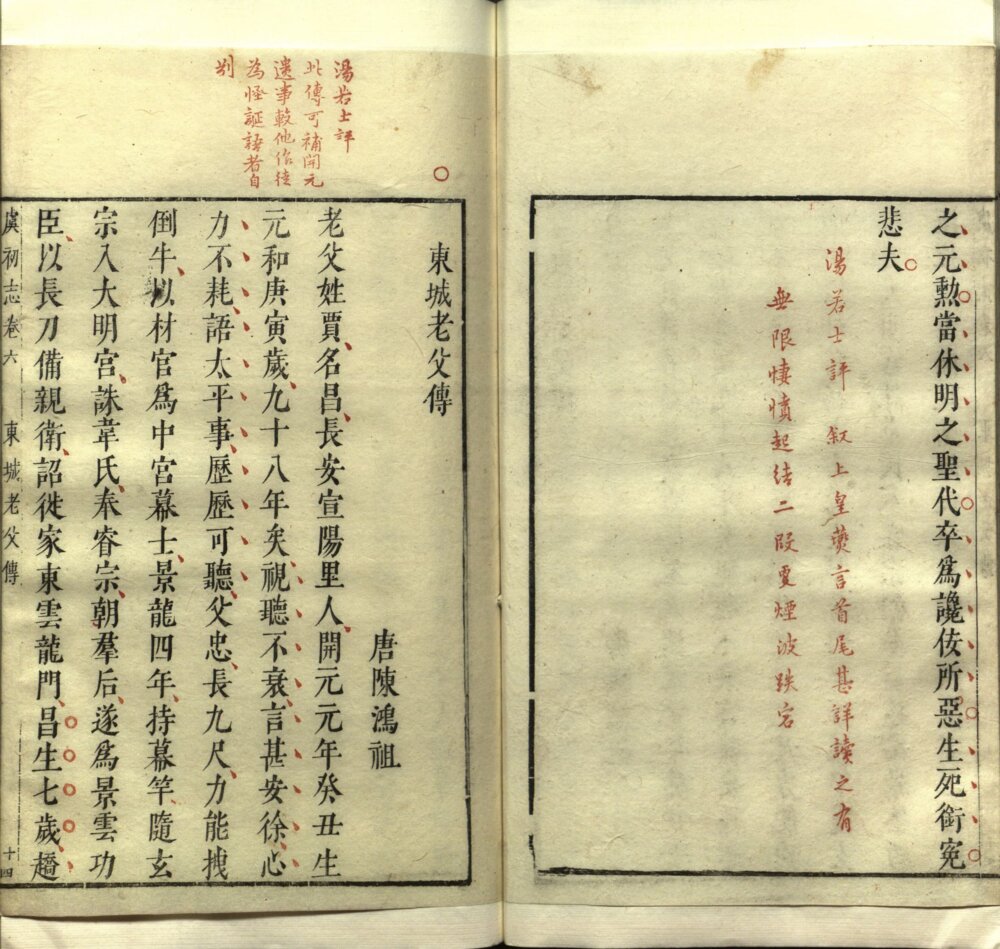 之元勳當休明之聖代卒爲讒佞所惡生死銜冤
悲夫
湯若士評 叙上皇薨言首尾甚詳讀之有
無限悽憤起結二段更煙波跌宕
湯若士評
此傳可補開元
遺事較他作徒
為怪誕語者自
別
東城老父傳
唐陳鴻祖
老父姓賈名昌長安宣陽里人開元元年癸丑生
元和庚寅歲九十八年矣視聽不衰言甚安徐心
力不耗語太平事歷歷可聽父忠長九尺力能拽
倒牛以材官爲中宮幕士景龍四年持幕竿隨玄
宗入大明宮誅韋氏奉睿宗朝羣后遂爲景雲功
臣以長刀備親衛詔徙家東雲龍門昌生七歲趫
虞初志卷六 東城老父傳 十四